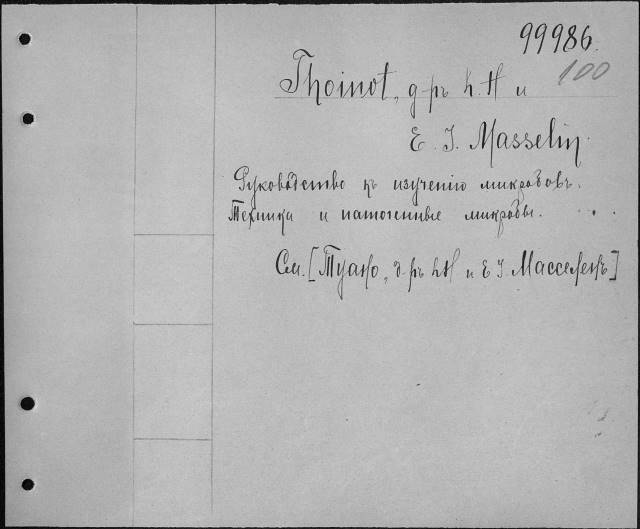 99986.
100
Thoinot, д-ръ h. H и
E. J. Masselin.
Руководство къ изученію микробовъ.
Техника и патогенные микробы. . . .
См. [Туано, д-ръ h H и E J. Масселенъ]